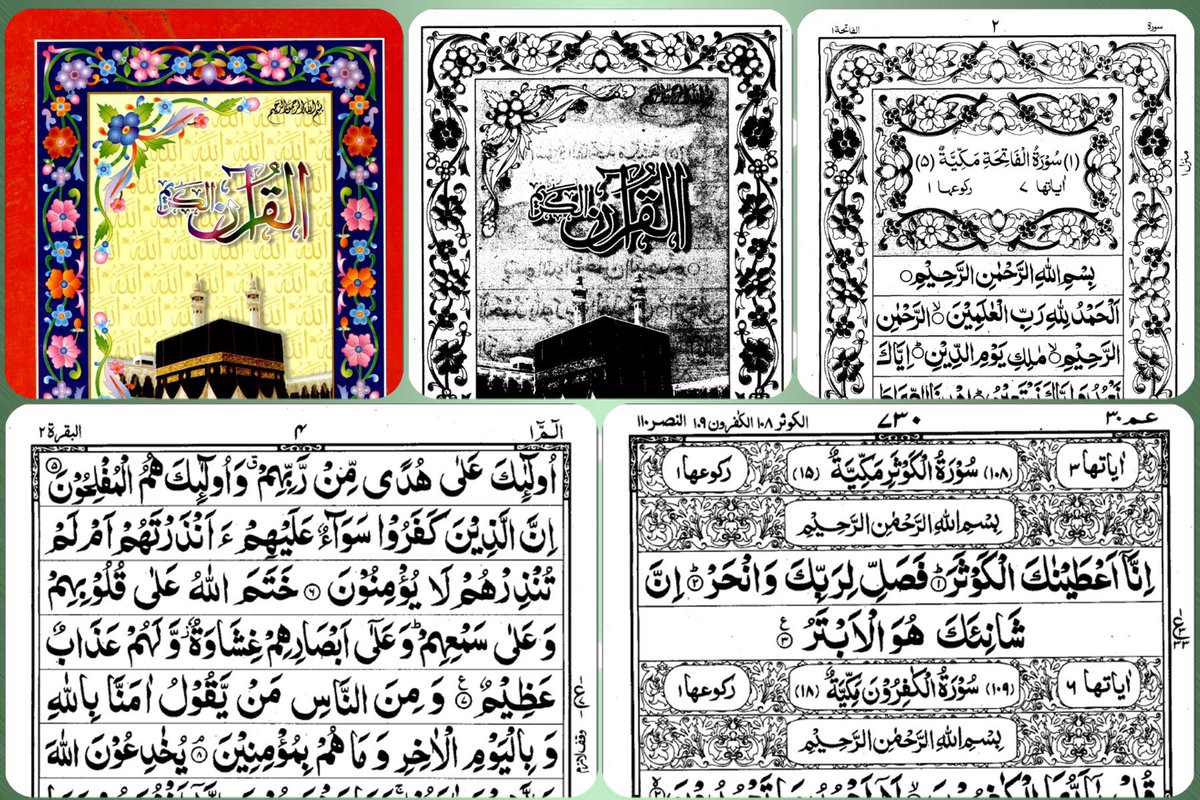 بسم الله الرحمن الرحيم
القرآن الكريم
بسم الله الرحمن الرحيم
القرآن الكريم
الفاتحة ١
٢
سورة
(١) سُوْرَةُ الْفَاتِحَةِ مَكِّيَّةٌ (٥)
اٰیاتها ٧ رکوعها ١
بِسْمِ اللّٰهِ الرَّحْمٰنِ الرَّحِیْمِ○
اَلْحَمْدُ لِلّٰهِ رَبِّ الْعٰلَمِیْنَ ۙ الرَّحْمٰنِ
الرَّحِیْمِ ۙ مٰلِكِ یَوْمِ الدِّیْنِ ؕ اِیَّاكَ
البقرة ٢
٤
الٓمّٓ ١
اُولٰٓىِٕكَ عَلٰی هُدًی مِّنْ رَّبِّهِمْ ۗ وَاُولٰٓىِٕكَ هُمُ الْمُفْلِحُوْنَ ٥
اِنَّ الَّذِیْنَ كَفَرُوْا سَوَآءٌ عَلَیْهِمْ ءَاَنْذَرْتَهُمْ اَمْ لَمْ
تُنْذِرْهُمْ لَا یُؤْمِنُوْنَ ٦ خَتَمَ اللّٰهُ عَلٰی قُلُوْبِهِمْ
وَعَلٰی سَمْعِهِمْ ؕ وَعَلٰۤی اَبْصَارِهِمْ غِشَاوَةٌ ۫ وَّلَهُمْ عَذَابٌ
عَظِیْمٌ ٧ وَمِنَ النَّاسِ مَنْ یَّقُوْلُ اٰمَنَّا بِاللّٰهِ
وَبِالْیَوْمِ الْاٰخِرِ وَمَا هُمْ بِمُؤْمِنِیْنَ ٨ یُخٰدِعُوْنَ اللّٰهَ
عمّ ٣٠
٧٣٠
الكوثر ١٠٨ الكٰفرون ١٠٩ النصر ١١٠
اٰیاتها ٣ (١٠٨) سُوْرَةُ الْكَوْثَرِ مَكِّیَّةٌ (١٥) رکوعها ١
بِسْمِ اللّٰهِ الرَّحْمٰنِ الرَّحِیْمِ
اِنَّاۤ اَعْطَیْنٰكَ الْكَوْثَرَ ؕ ١ فَصَلِّ لِرَبِّكَ وَانْحَرْ ؕ ٢ اِنَّ
شَانِئَكَ هُوَ الْاَبْتَرُ ٣
اٰیاتها ٦ (١٠٩) سُوْرَةُ الْكٰفِرُوْنَ مَكِّیَّةٌ (١٨) رکوعها ١
بِسْمِ اللّٰهِ الرَّحْمٰنِ الرَّحِیْمِ